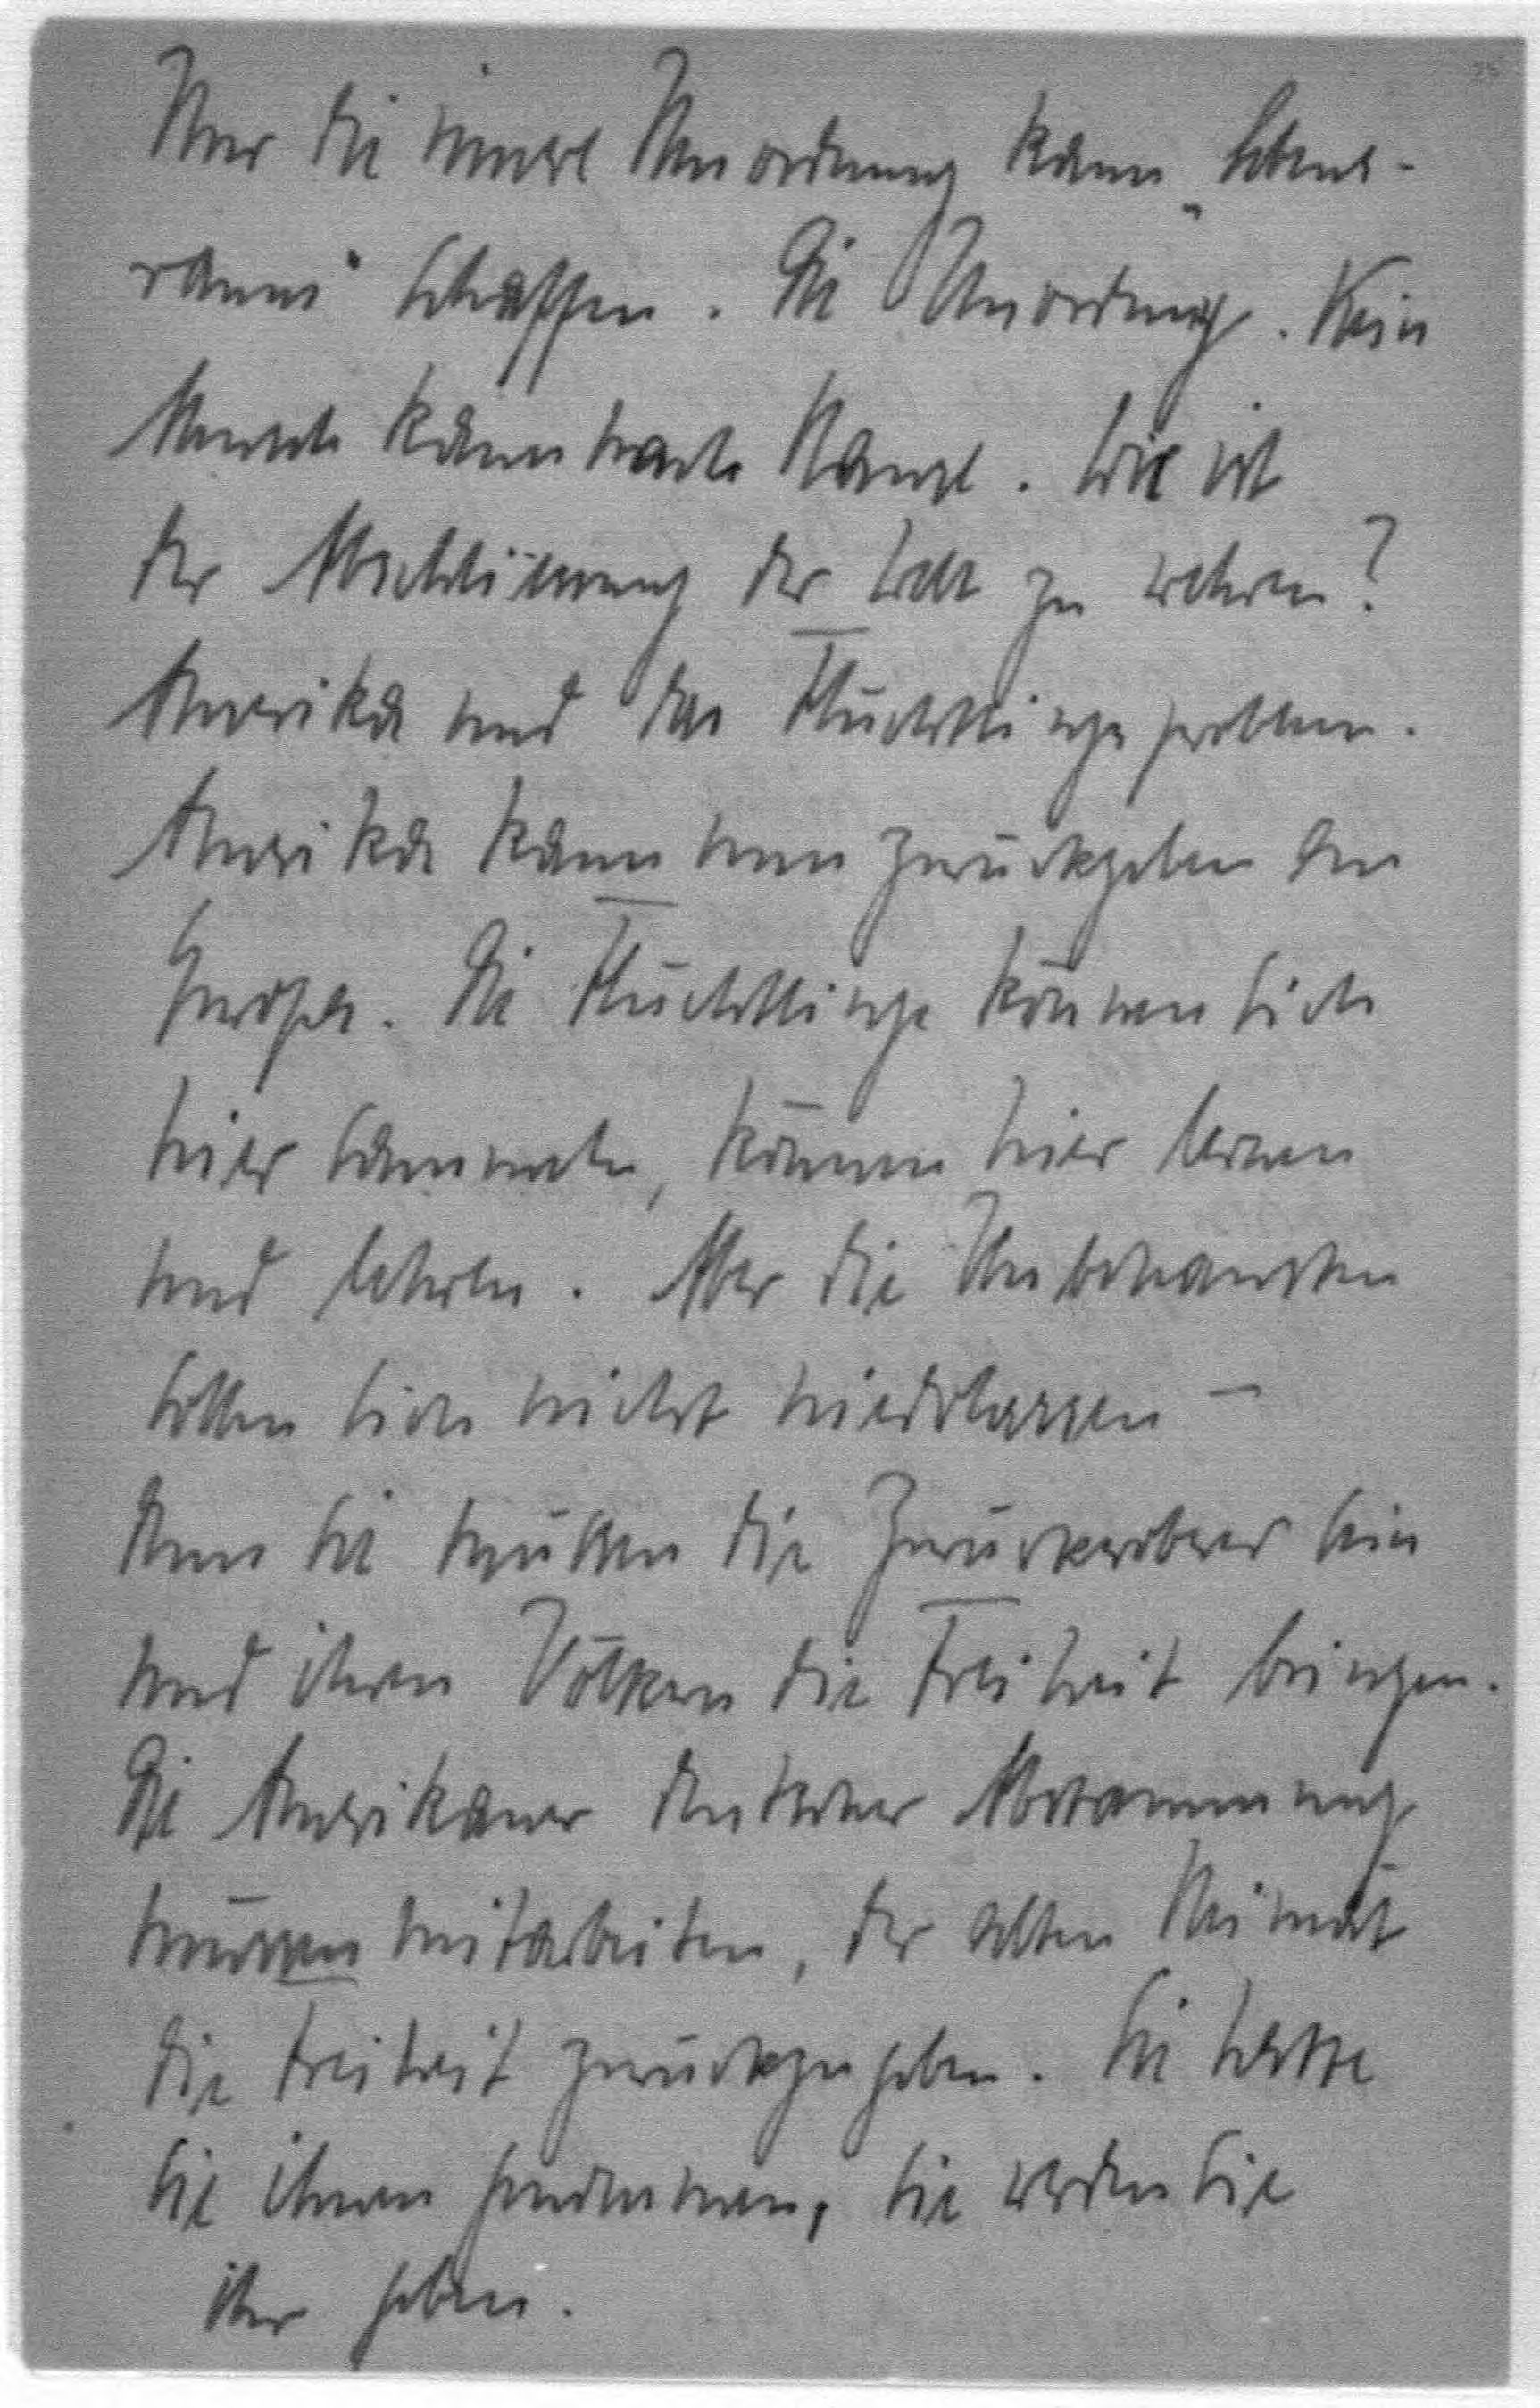 Nur die innere Neuordnung kann „Lebens-
raum“ schaffen. Die Unordnung. Kein
Mensch kann nach Hause. Wie ist
der Abschließung der Welt zu wehren?
Amerika und das Flüchtlingsproblem.
Amerika kann nun zurückgeben an
Europa. Die Flüchtlinge können sich
hier sammeln, können hier lernen
und lehren. Aber die Unbehausten
sollen sich nicht niederlassen –
denn sie müssen die Zurückeroberer sein
und ihren Völkern die Freiheit bringen.
Die Amerikaner deutscher Abstammung
müssen mitarbeiten, der alten Heimat
die Freiheit zurückzugeben. Sie hatte
sie ihnen genommen, sie werden sie
ihr geben.